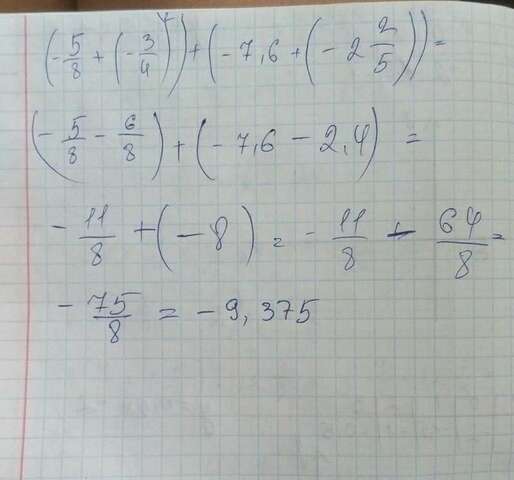 (-5/8 + (-3/4)) + (-7,6 + (-2 2/5)) =
(-5/8 - 6/8) + (-7,6 - 2,4) =
-11/8 + (-8) = -11/8 - 64/8 =
-75/8 = -9,375